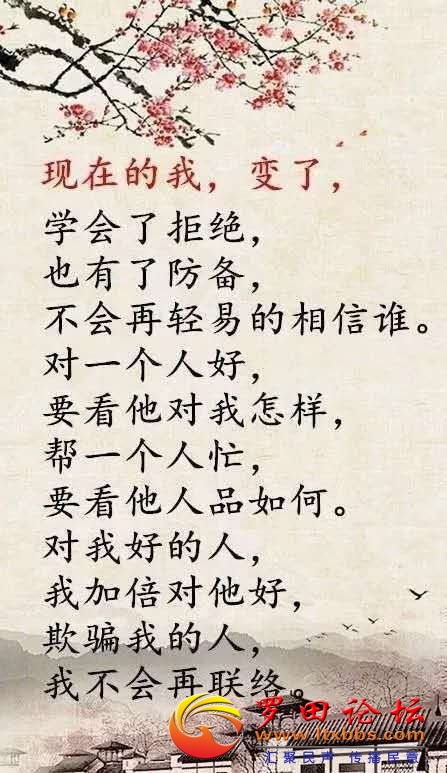 现在的我，变了，
学会了拒绝，
也有了防备，
不会再轻易的相信谁。
对一个人好，
要看他对我怎样，
帮一个人忙，
要看他人品如何。
对我好的人，
我加倍对他好，
欺骗我的人，
我不会再联络。
罗田论坛
www.ltxbbs.com
汇聚民声 传播民意